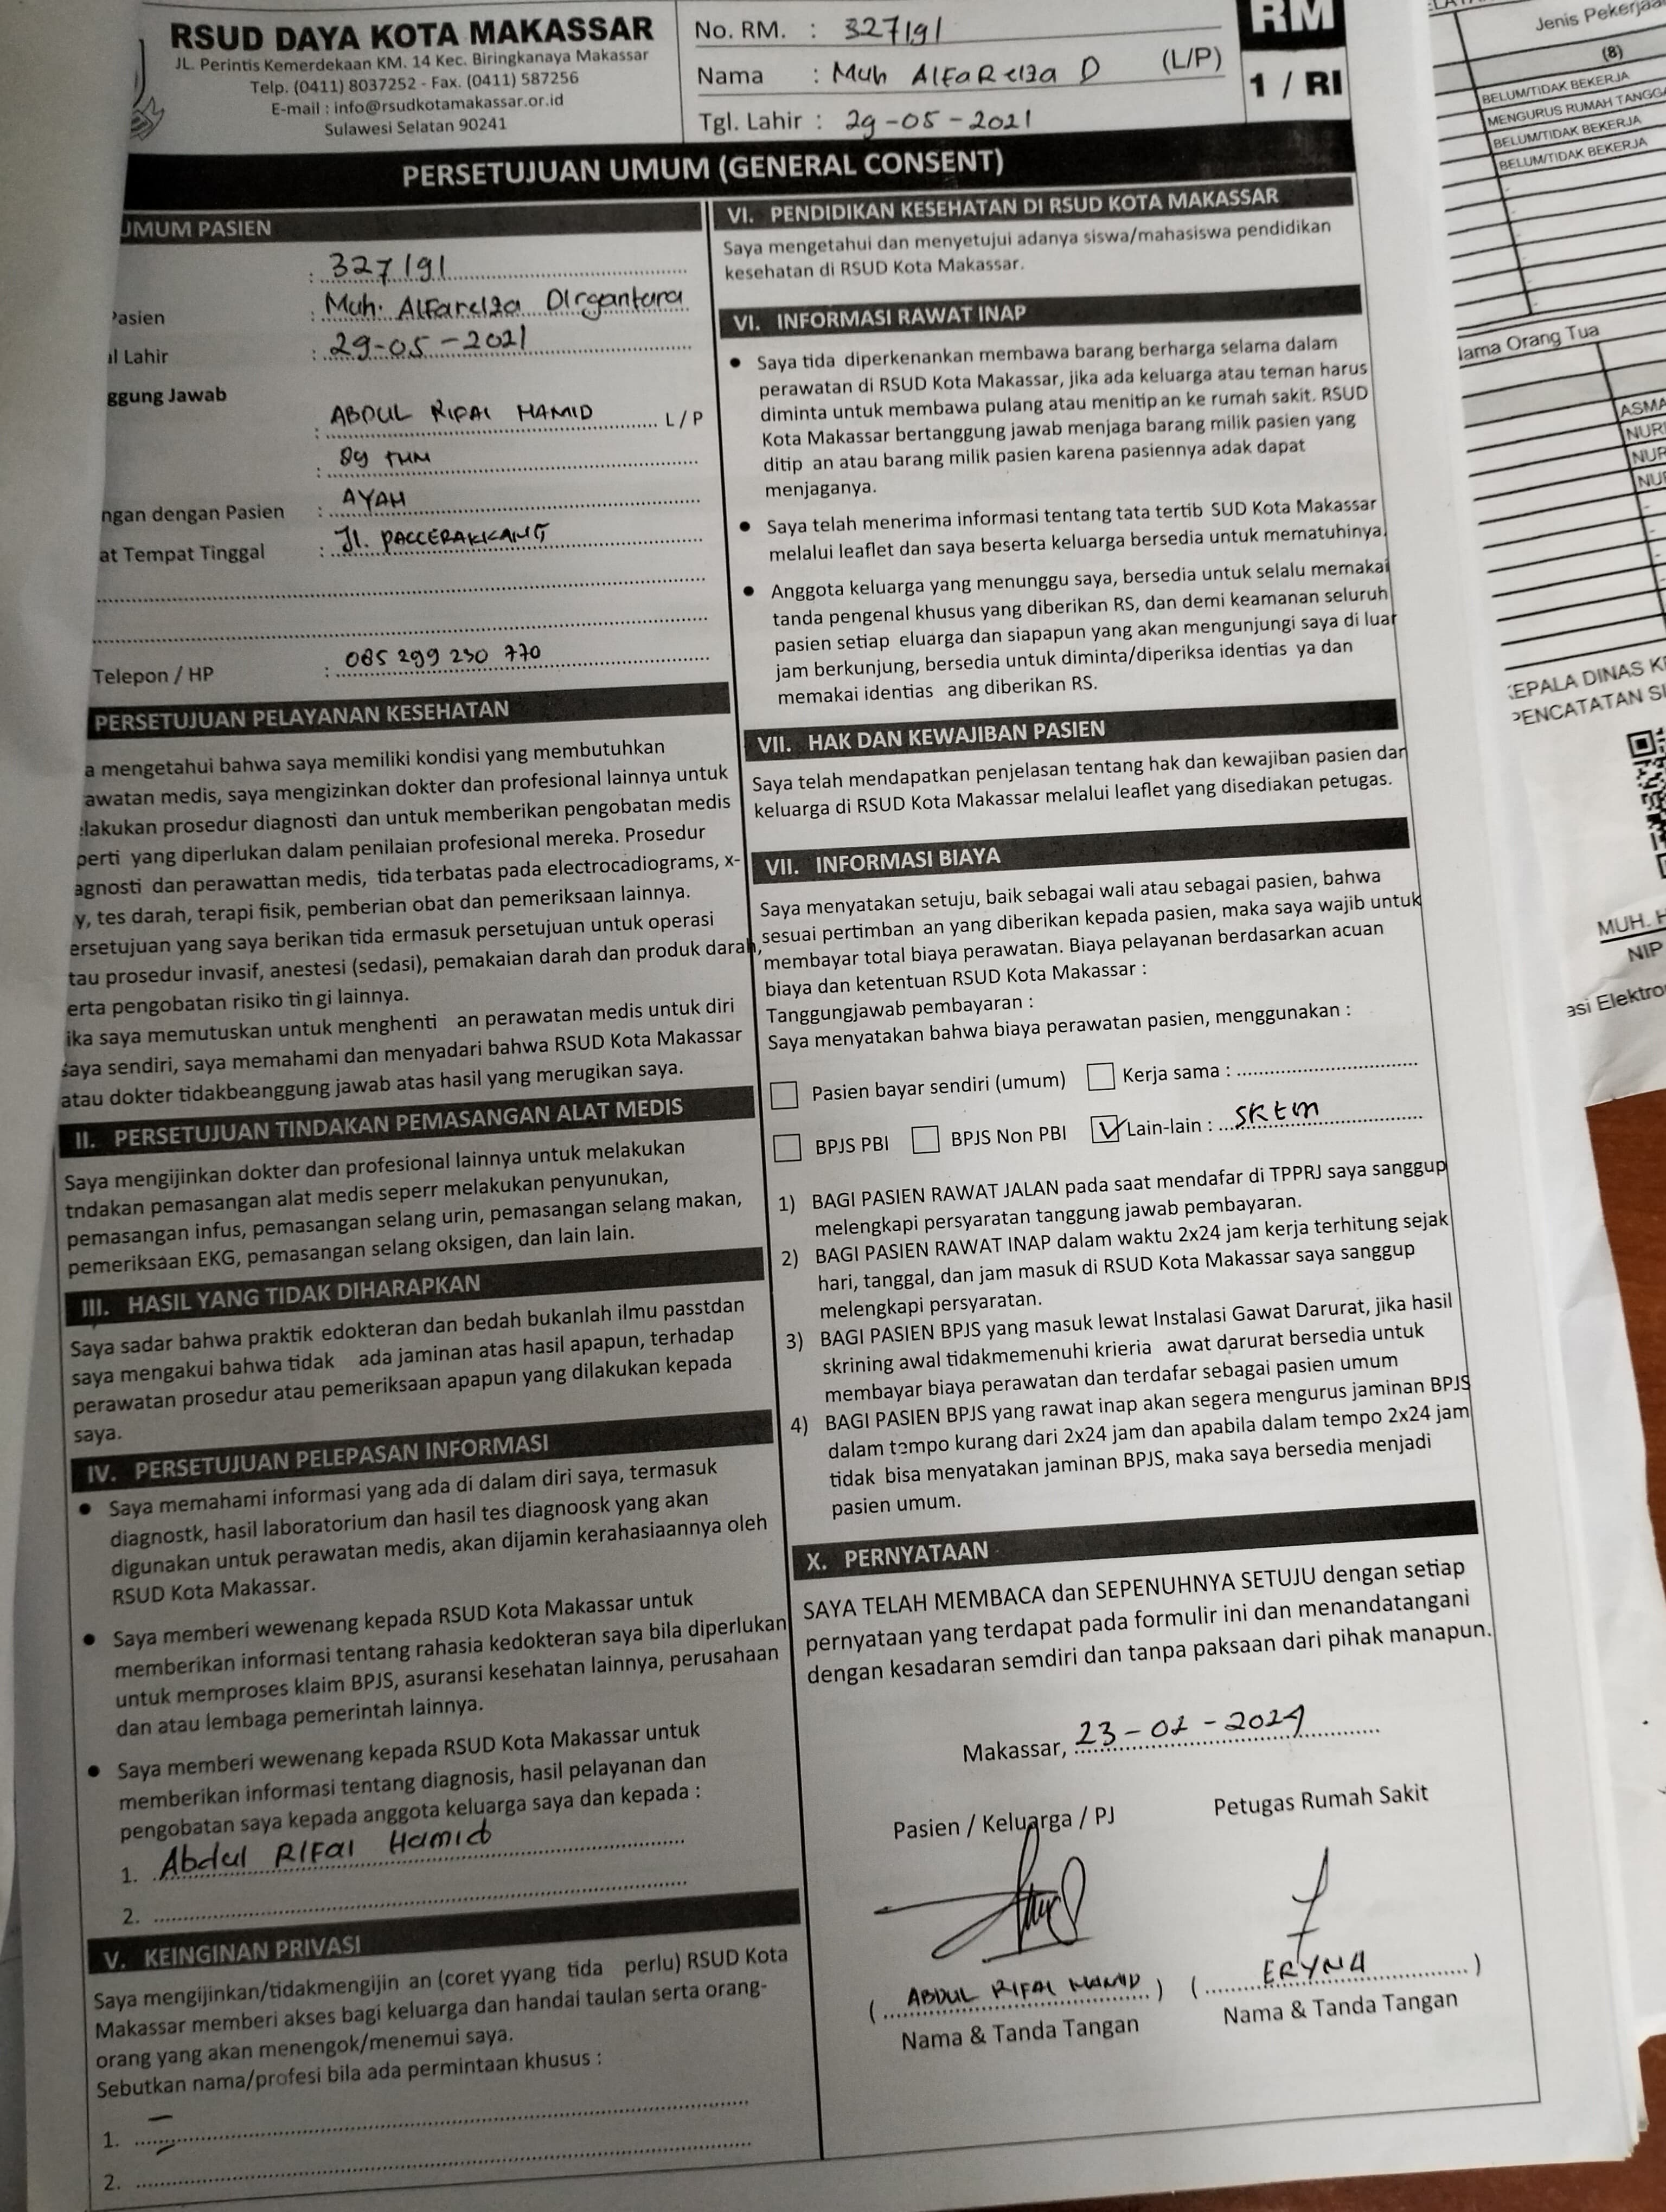 RSUD DAYA KOTA MAKASSAR
JL. Perintis Kemerdekaan KM. 14 Kec. Biringkanaya Makassar
Telp. (0411) 8037252 - Fax. (0411) 587256
E-mail : info@rsudkotamakassar.or.id
Sulawesi Selatan 90241
No. RM. : 327191
Nama : Muh Alfareiza D (L/P)
Tgl. Lahir : 29-05-2021
RM
1 / RI
PERSETUJUAN UMUM (GENERAL CONSENT)
UMUM PASIEN
: 327191
Pasien : Muh. Alfareiza Dirgantara
al Lahir : 29-05-2021
ggung Jawab
: ABDUL RIFAI HAMID L / P
:
ngan dengan Pasien : AYAH
at Tempat Tinggal : Jl. PACCERAKKANG
Telepon / HP : 085 299 230 770
PERSETUJUAN PELAYANAN KESEHATAN
a mengetahui bahwa saya memiliki kondisi yang membutuhkan
awatan medis, saya mengizinkan dokter dan profesional lainnya untuk
elakukan prosedur diagnosti dan untuk memberikan pengobatan medis
perti yang diperlukan dalam penilaian profesional mereka. Prosedur
agnosti dan perawattan medis, tida terbatas pada electrocadiograms, x-
y, tes darah, terapi fisik, pemberian obat dan pemeriksaan lainnya.
ersetujuan yang saya berikan tida ermasuk persetujuan untuk operasi
tau prosedur invasif, anestesi (sedasi), pemakaian darah dan produk darah,
erta pengobatan risiko tin gi lainnya.
ika saya memutuskan untuk menghenti an perawatan medis untuk diri
saya sendiri, saya memahami dan menyadari bahwa RSUD Kota Makassar
atau dokter tidakbeanggung jawab atas hasil yang merugikan saya.
II. PERSETUJUAN TINDAKAN PEMASANGAN ALAT MEDIS
Saya mengijinkan dokter dan profesional lainnya untuk melakukan
tndakan pemasangan alat medis seperr melakukan penyunukan,
pemasangan infus, pemasangan selang urin, pemasangan selang makan,
pemeriksaan EKG, pemasangan selang oksigen, dan lain lain.
III. HASIL YANG TIDAK DIHARAPKAN
Saya sadar bahwa praktik edokteran dan bedah bukanlah ilmu passtdan
saya mengakui bahwa tidak ada jaminan atas hasil apapun, terhadap
perawatan prosedur atau pemeriksaan apapun yang dilakukan kepada
saya.
IV. PERSETUJUAN PELEPASAN INFORMASI
● Saya memahami informasi yang ada di dalam diri saya, termasuk
diagnostk, hasil laboratorium dan hasil tes diagnoosk yang akan
digunakan untuk perawatan medis, akan dijamin kerahasiaannya oleh
RSUD Kota Makassar.
● Saya memberi wewenang kepada RSUD Kota Makassar untuk
memberikan informasi tentang rahasia kedokteran saya bila diperlukan
untuk memproses klaim BPJS, asuransi kesehatan lainnya, perusahaan
dan atau lembaga pemerintah lainnya.
● Saya memberi wewenang kepada RSUD Kota Makassar untuk
memberikan informasi tentang diagnosis, hasil pelayanan dan
pengobatan saya kepada anggota keluarga saya dan kepada :
1. Abdul RIFAI Hamid
2.
V. KEINGINAN PRIVASI
Saya mengijinkan/tidakmengijin an (coret yyang tida perlu) RSUD Kota
Makassar memberi akses bagi keluarga dan handai taulan serta orang-
orang yang akan menengok/menemui saya.
Sebutkan nama/profesi bila ada permintaan khusus :
1.
2.
VI. PENDIDIKAN KESEHATAN DI RSUD KOTA MAKASSAR
Saya mengetahui dan menyetujui adanya siswa/mahasiswa pendidikan
kesehatan di RSUD Kota Makassar.
VI. INFORMASI RAWAT INAP
● Saya tida diperkenankan membawa barang berharga selama dalam
perawatan di RSUD Kota Makassar, jika ada keluarga atau teman harus
diminta untuk membawa pulang atau menitip an ke rumah sakit. RSUD
Kota Makassar bertanggung jawab menjaga barang milik pasien yang
ditip an atau barang milik pasien karena pasiennya adak dapat
menjaganya.
● Saya telah menerima informasi tentang tata tertib SUD Kota Makassar
melalui leaflet dan saya beserta keluarga bersedia untuk mematuhinya.
● Anggota keluarga yang menunggu saya, bersedia untuk selalu memakai
tanda pengenal khusus yang diberikan RS, dan demi keamanan seluruh
pasien setiap eluarga dan siapapun yang akan mengunjungi saya di luar
jam berkunjung, bersedia untuk diminta/diperiksa identias ya dan
memakai identias ang diberikan RS.
VII. HAK DAN KEWAJIBAN PASIEN
Saya telah mendapatkan penjelasan tentang hak dan kewajiban pasien dan
keluarga di RSUD Kota Makassar melalui leaflet yang disediakan petugas.
VII. INFORMASI BIAYA
Saya menyatakan setuju, baik sebagai wali atau sebagai pasien, bahwa
sesuai pertimban an yang diberikan kepada pasien, maka saya wajib untuk
membayar total biaya perawatan. Biaya pelayanan berdasarkan acuan
biaya dan ketentuan RSUD Kota Makassar :
Tanggungjawab pembayaran :
Saya menyatakan bahwa biaya perawatan pasien, menggunakan :
Pasien bayar sendiri (umum) Kerja sama :
BPJS PBI BPJS Non PBI Lain-lain : SKtm
1) BAGI PASIEN RAWAT JALAN pada saat mendafar di TPPRJ saya sanggup
melengkapi persyaratan tanggung jawab pembayaran.
2) BAGI PASIEN RAWAT INAP dalam waktu 2x24 jam kerja terhitung sejak
hari, tanggal, dan jam masuk di RSUD Kota Makassar saya sanggup
melengkapi persyaratan.
3) BAGI PASIEN BPJS yang masuk lewat Instalasi Gawat Darurat, jika hasil
skrining awal tidakmemenuhi krieria awat darurat bersedia untuk
membayar biaya perawatan dan terdafar sebagai pasien umum
4) BAGI PASIEN BPJS yang rawat inap akan segera mengurus jaminan BPJS
dalam tempo kurang dari 2x24 jam dan apabila dalam tempo 2x24 jam
tidak bisa menyatakan jaminan BPJS, maka saya bersedia menjadi
pasien umum.
X. PERNYATAAN
SAYA TELAH MEMBACA dan SEPENUHNYA SETUJU dengan setiap
pernyataan yang terdapat pada formulir ini dan menandatangani
dengan kesadaran semdiri dan tanpa paksaan dari pihak manapun.
Makassar, 23-02-2024
Pasien / Keluarga / PJ Petugas Rumah Sakit
( ABDUL RIFAI HAMID ) ( ERYNA )
Nama & Tanda Tangan Nama & Tanda Tangan
Jenis Pekerjaa
(8)
BELUM/TIDAK BEKERJA
MENGURUS RUMAH TANGGA
BELUM/TIDAK BEKERJA
BELUM/TIDAK BEKERJA
Nama Orang Tua
ASMA
NUR
NUR
NU
KEPALA DINAS K
PENCATATAN SI
MUH. H
NIP
asi Elektro